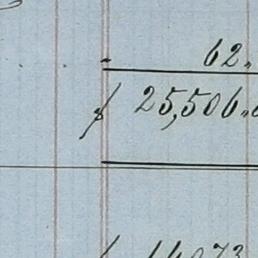 62.
$ 25,506.
14073